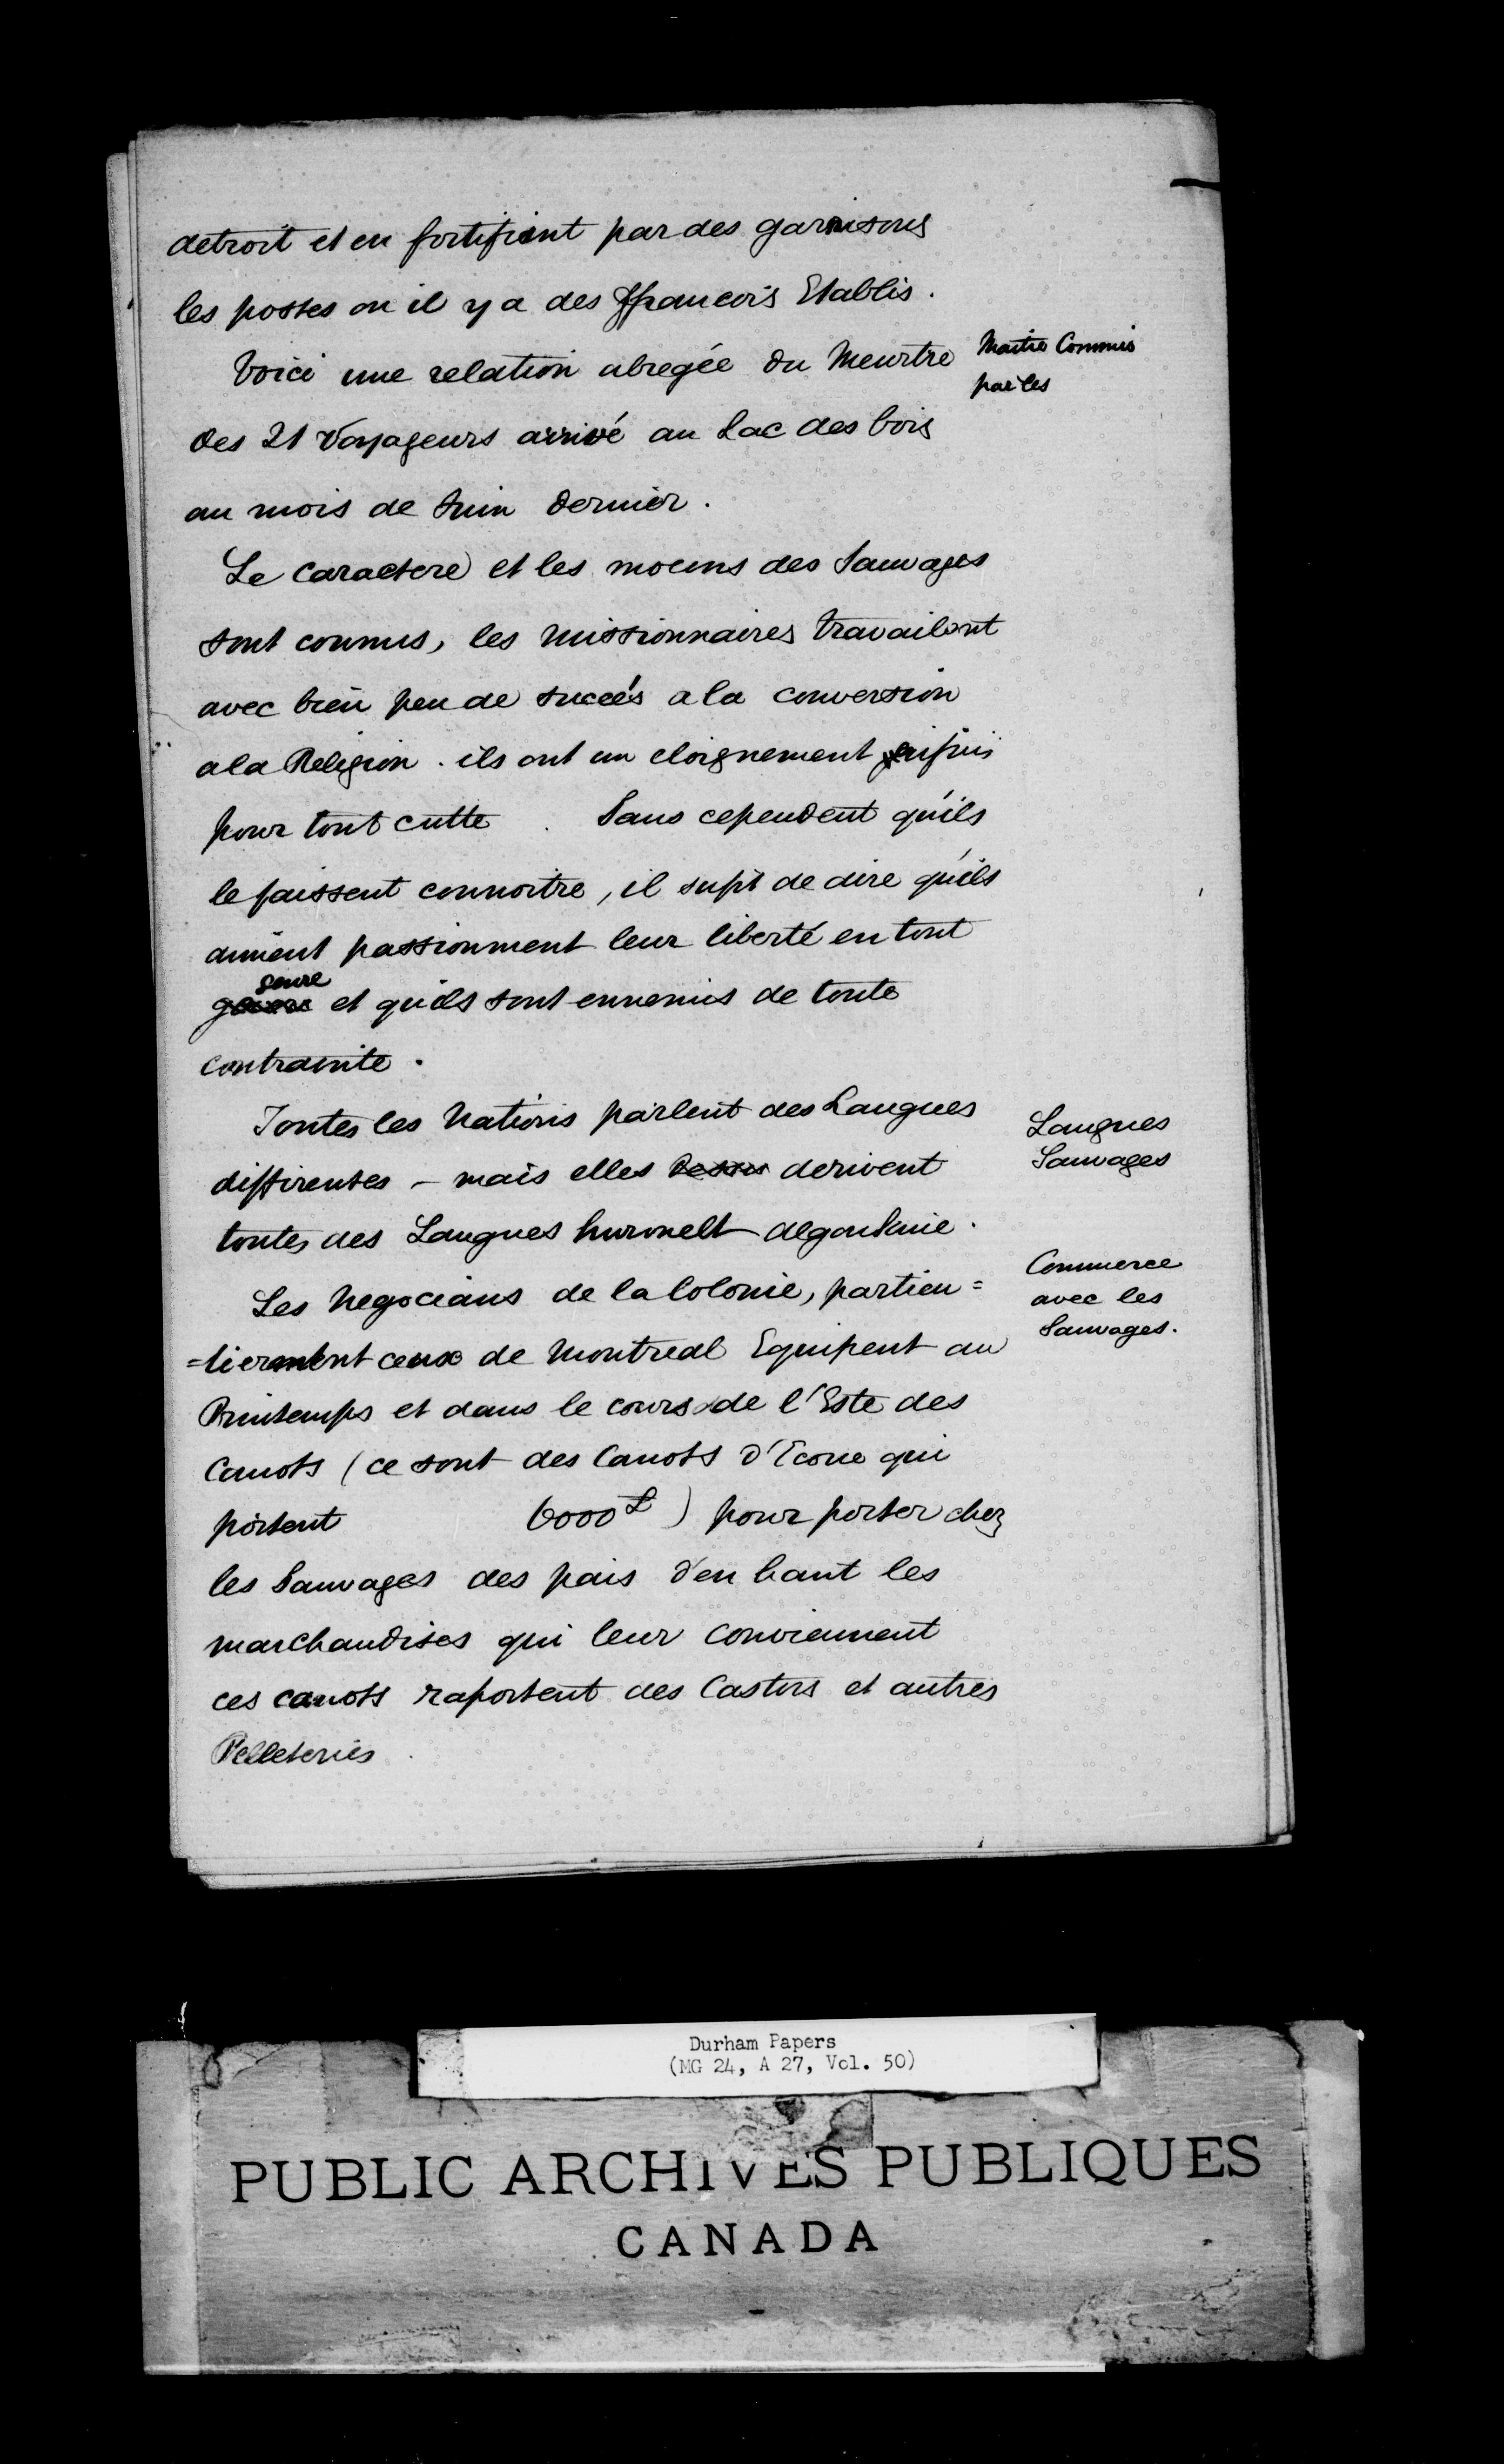 detroit et en fortifiant par des garnisons
les postes ou il y a des ffrancois Etablis.
Voici une relation abregée du Meurtre
Maitre Commis
par les
des 21 Voyageurs arrivé au Lac des bois
au mois de Juin dernier.
Le Caractere et les moeurs des Sauvages
sont connus, les Missionnaires travailent
avec bien peu de succés a la conversion
a la Religion. ils ont un eloignement
pour tout culte. Sans cependent qu'ils
le faissent connoitre, il sufit de dire qu'ils
aiment passionment leur liberté en tout
genre
et qu'ils sont ennemis de toute
contrainte.
Toutes les Nations parlent des Langues
Langues
Sauvages
differentes - mais elles derivent
toutes des Langues huronelt algonkine.
Les Negocians de la Colonie, particu=
Commerce
avec les
Sauvages.
=lierment ceux de Montreal Equipent au
Printemps et dans le cours de l'Este des
Canots (ce sont des Canots d'Ecorce qui
portent 6000 £) pour porter chez
les Sauvages des pais d'en haut les
marchandises qui leur conviennent
ces canots raportent des Castors et autres
Pelleteries.
Durham Papers
(MG 24, A 27, Vol. 50)
PUBLIC ARCHIVES PUBLIQUES
CANADA